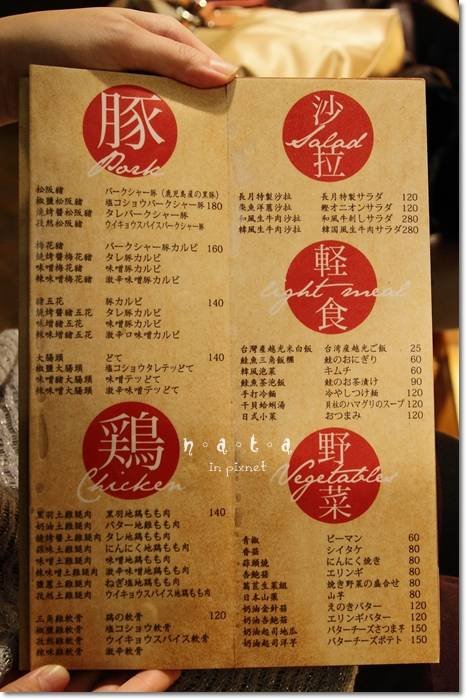 豚
Pork
松阪豬 バークシャー豚(鹿児島産の黒豚)
椒鹽松阪豬 塩コショウバークシャー豚 180
燒烤醬松阪豬 タレバークシャー豚
孜然松阪豬 ウイキョウスパイスバークシャー豚
梅花豬 バークシャー豚カルビ 160
燒烤醬梅花豬 タレ豚カルビ
味噌梅花豬 味噌豚カルビ
辣味噌梅花豬 激辛味噌豚カルビ
豬五花 豚カルビ 140
燒烤醬豬五花 タレ豚カルビ
味噌豬五花 味噌豚カルビ
辣味噌五花 激辛口味噌カルビ
大腸頭 どて 140
椒鹽大腸頭 塩コショウタレテッどて
味噌豬大腸頭 味噌テッどて
辣味噌大腸頭 激辛味噌テッどて
鶏
Chicken
黑羽土雞腿肉 黒羽地鶏もも肉 140
奶油土雞腿肉 バター地雞もも肉
燒烤醬土雞腿肉 タレ地鶏もも肉
蒜味土雞腿肉 にんにく地鶏もも肉
味噌土雞腿肉 味噌地鶏もも肉
辣味噌土雞腿肉 激辛味噌地鶏もも肉
鹽蔥土雞腿肉 ねぎ塩地鶏もも肉
孜然土雞腿肉 ウイキョウスパイス地鶏もも肉
三角雞軟骨 鶏の軟骨 120
椒鹽雞軟骨 塩コショウ軟骨
孜然雞軟骨 ウイキョウスパイス軟骨
辣味雞軟骨 激辛軟骨
沙拉
Salad
長月特製沙拉 長月特製サラダ 120
柴魚洋蔥沙拉 鰹オニオンサラダ 120
和風生牛肉沙拉 和風牛刺しサラダ 280
韓風生牛肉沙拉 韓国風生牛肉サラダ 280
軽食
light meal
台灣產越光米白飯 台湾産越光ご飯 25
鮭魚三角飯糰 鮭のおにぎり 60
韓風泡菜 キムチ 60
鮭魚茶泡飯 鮭のお茶漬け 90
手打冷麵 冷やしつけ麺 120
干貝蛤蜊湯 貝柱のハマグリのスープ 120
日式小菜 おつまみ 120
野菜
Vegetables
青椒 ピーマン 60
香菇 シイタケ 80
蒜頭燒 にんにく焼き 80
杏鮑菇 エリンギ 80
萵苣生菜組 焼き野菜の盛合せ 80
日本山藥 山芋 80
奶油金針菇 えのきバター 120
奶油杏鮑菇 エリンギバター 120
奶油起司地瓜 バターチーズさつま芋 150
奶油起司洋芋 バターチーズポテト 150
n·a·t·a
in pixnet